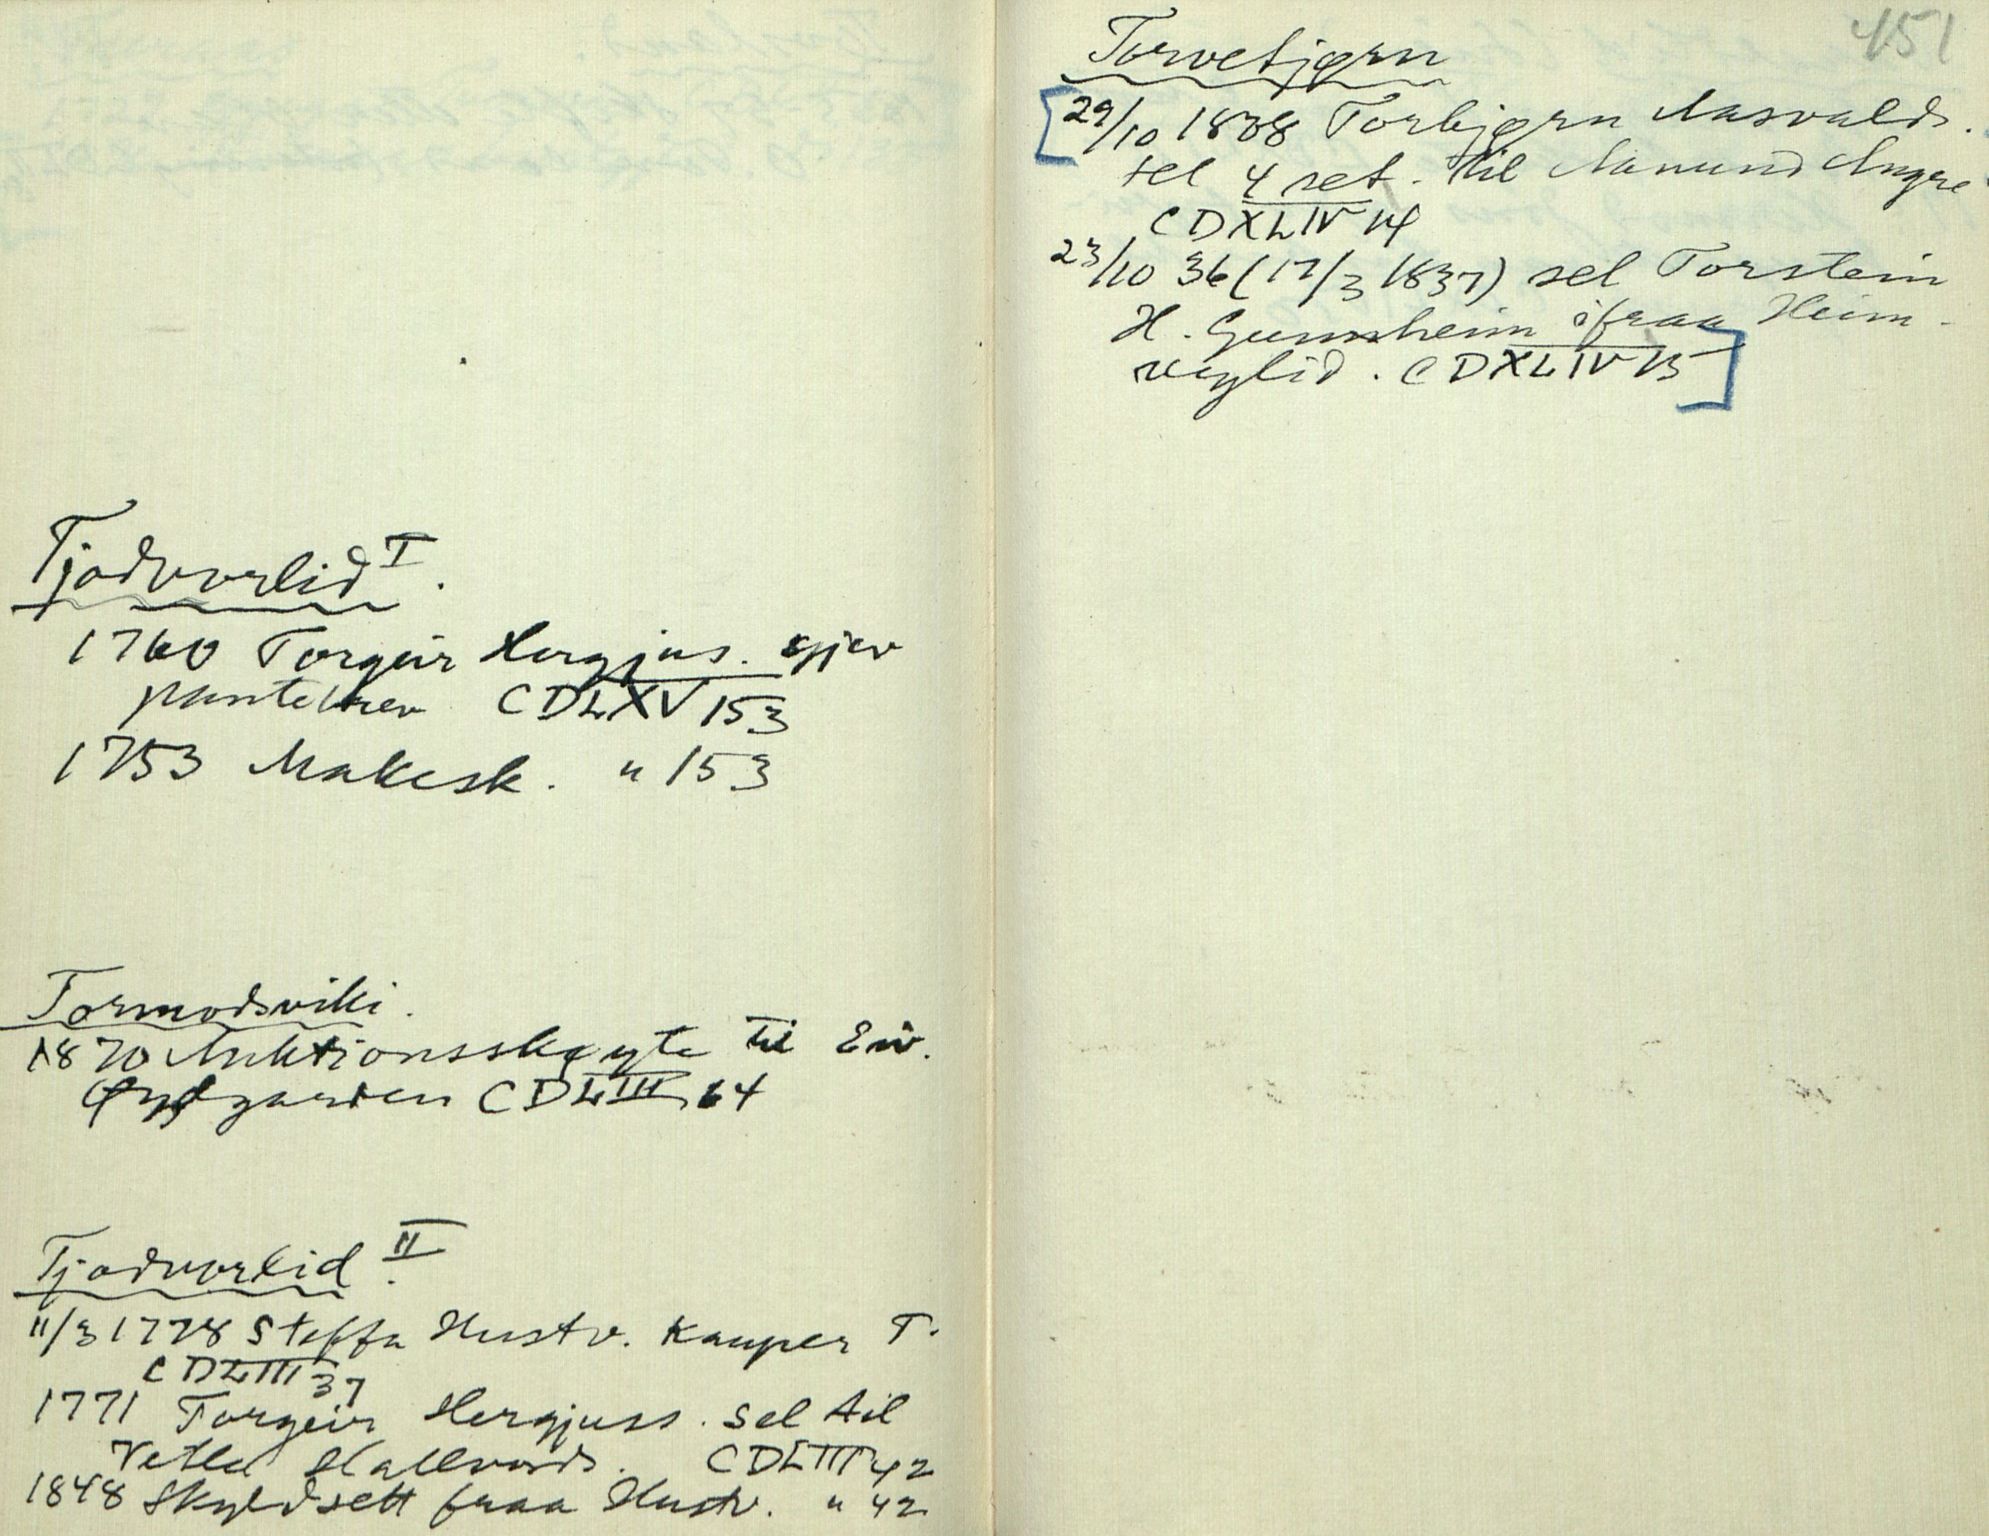 Tjodvorlid I.
1760 Torgeir Hergjus. gjev
pantebrev CDLXV 153
1753 Makesk. " 153
Tormodsviki.
1870 Auktionsskøyte til Eiv.
Øygarden CDLIII 64
Tjodvorlid II.
11/3 1778 Steffa Hustv. kauper T.
CDLIII 37
1771 Torgeir Hergjuss. sel til
Vetle Hallvords. CDLIII 42
1848 Skyldsett fraa Hustv. " 42
451
Torvetjørn
29/10 1838 Torbjørn Aasvalds.
sel 4 set. til Aamund
CDXLIV 14
23/10 36 (17/3 1837) sel Torstein
H. Gunnheim ifraa Heim-
CDXLIV 13